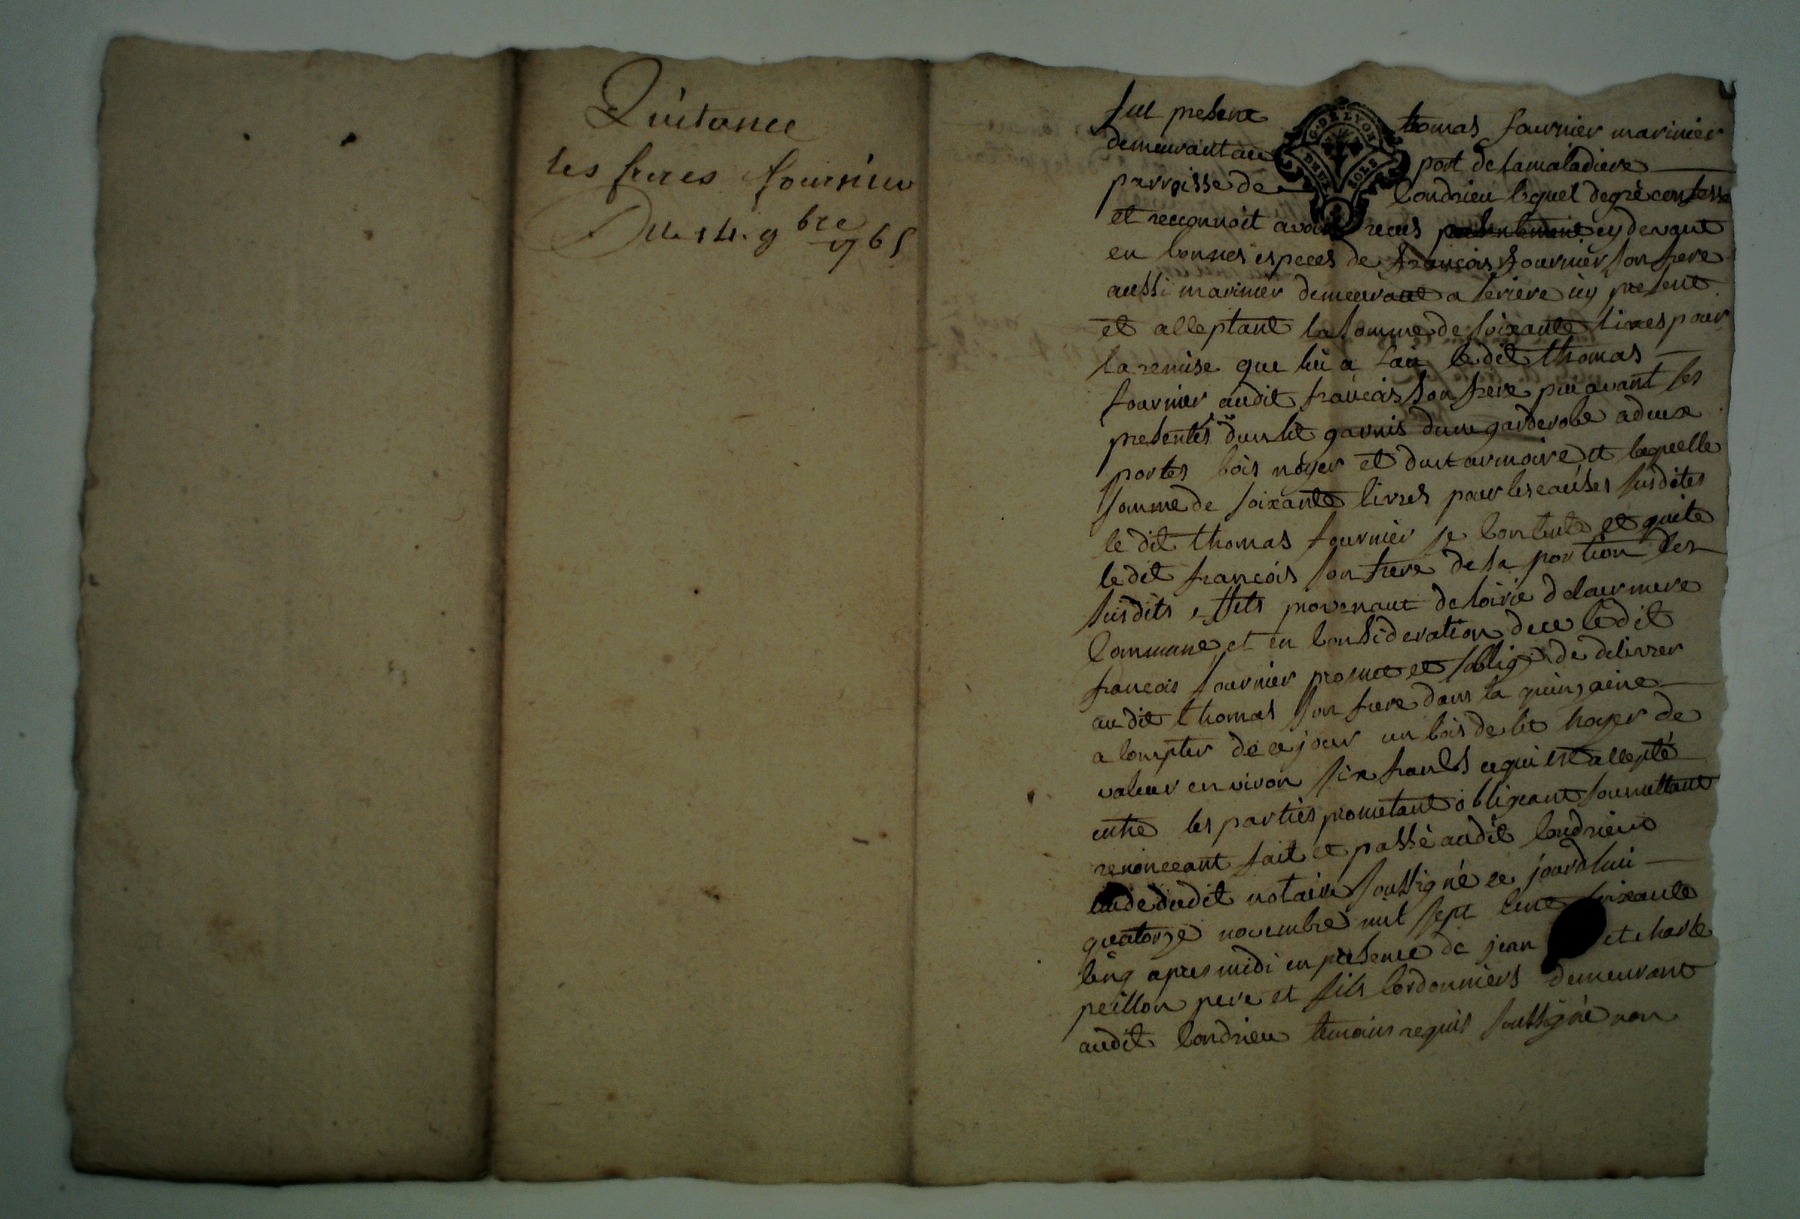 Quittance
les freres fournier
Du 14. 9bre
1765
fut present thomas fournier marinier
demeurant au port de la maladiere
parroisse de Condrieu lequel degré confesse
et reconnoit avoir reçus cy devant
en bonnes especes de françois fournier son frere
aussi marinier demeurant a seriere icy present
et acceptant la somme de soixante livres pour
la remise que lui a fait le dit thomas
fournier audit françois son frere par avant ses
presentes d'un lit garnis d'une garderobe a deux
portes bois noyer et d'une armoire et laquelle
somme de soixante livres pour les causes susdites
le dit thomas fournier se contente et quite
le dit françois son frere de sa portion des
susdits effets provenant de loirie de leur mere
Commune et en Consideration de ce le dit
francois fournier promet et soblige de delivrer
au dit thomas son frere dans la quinzaine
a compter de ce jour un bois de lit noyer de
valeur environ six francs ce qui est accepté
entre les parties prometant obligeant soumettant
renonceant fait et passé audit Condrieu
etude dudit notaire soussigné ce jourdhui
quatorze novembre mil sept cent soixante
cinq apres midi en presence de jean et charle
peillon pere et fils Cordonniers demeurant
audit Condrieu temoins requis soussigné non
G. DE LYON
DEUX SOLS